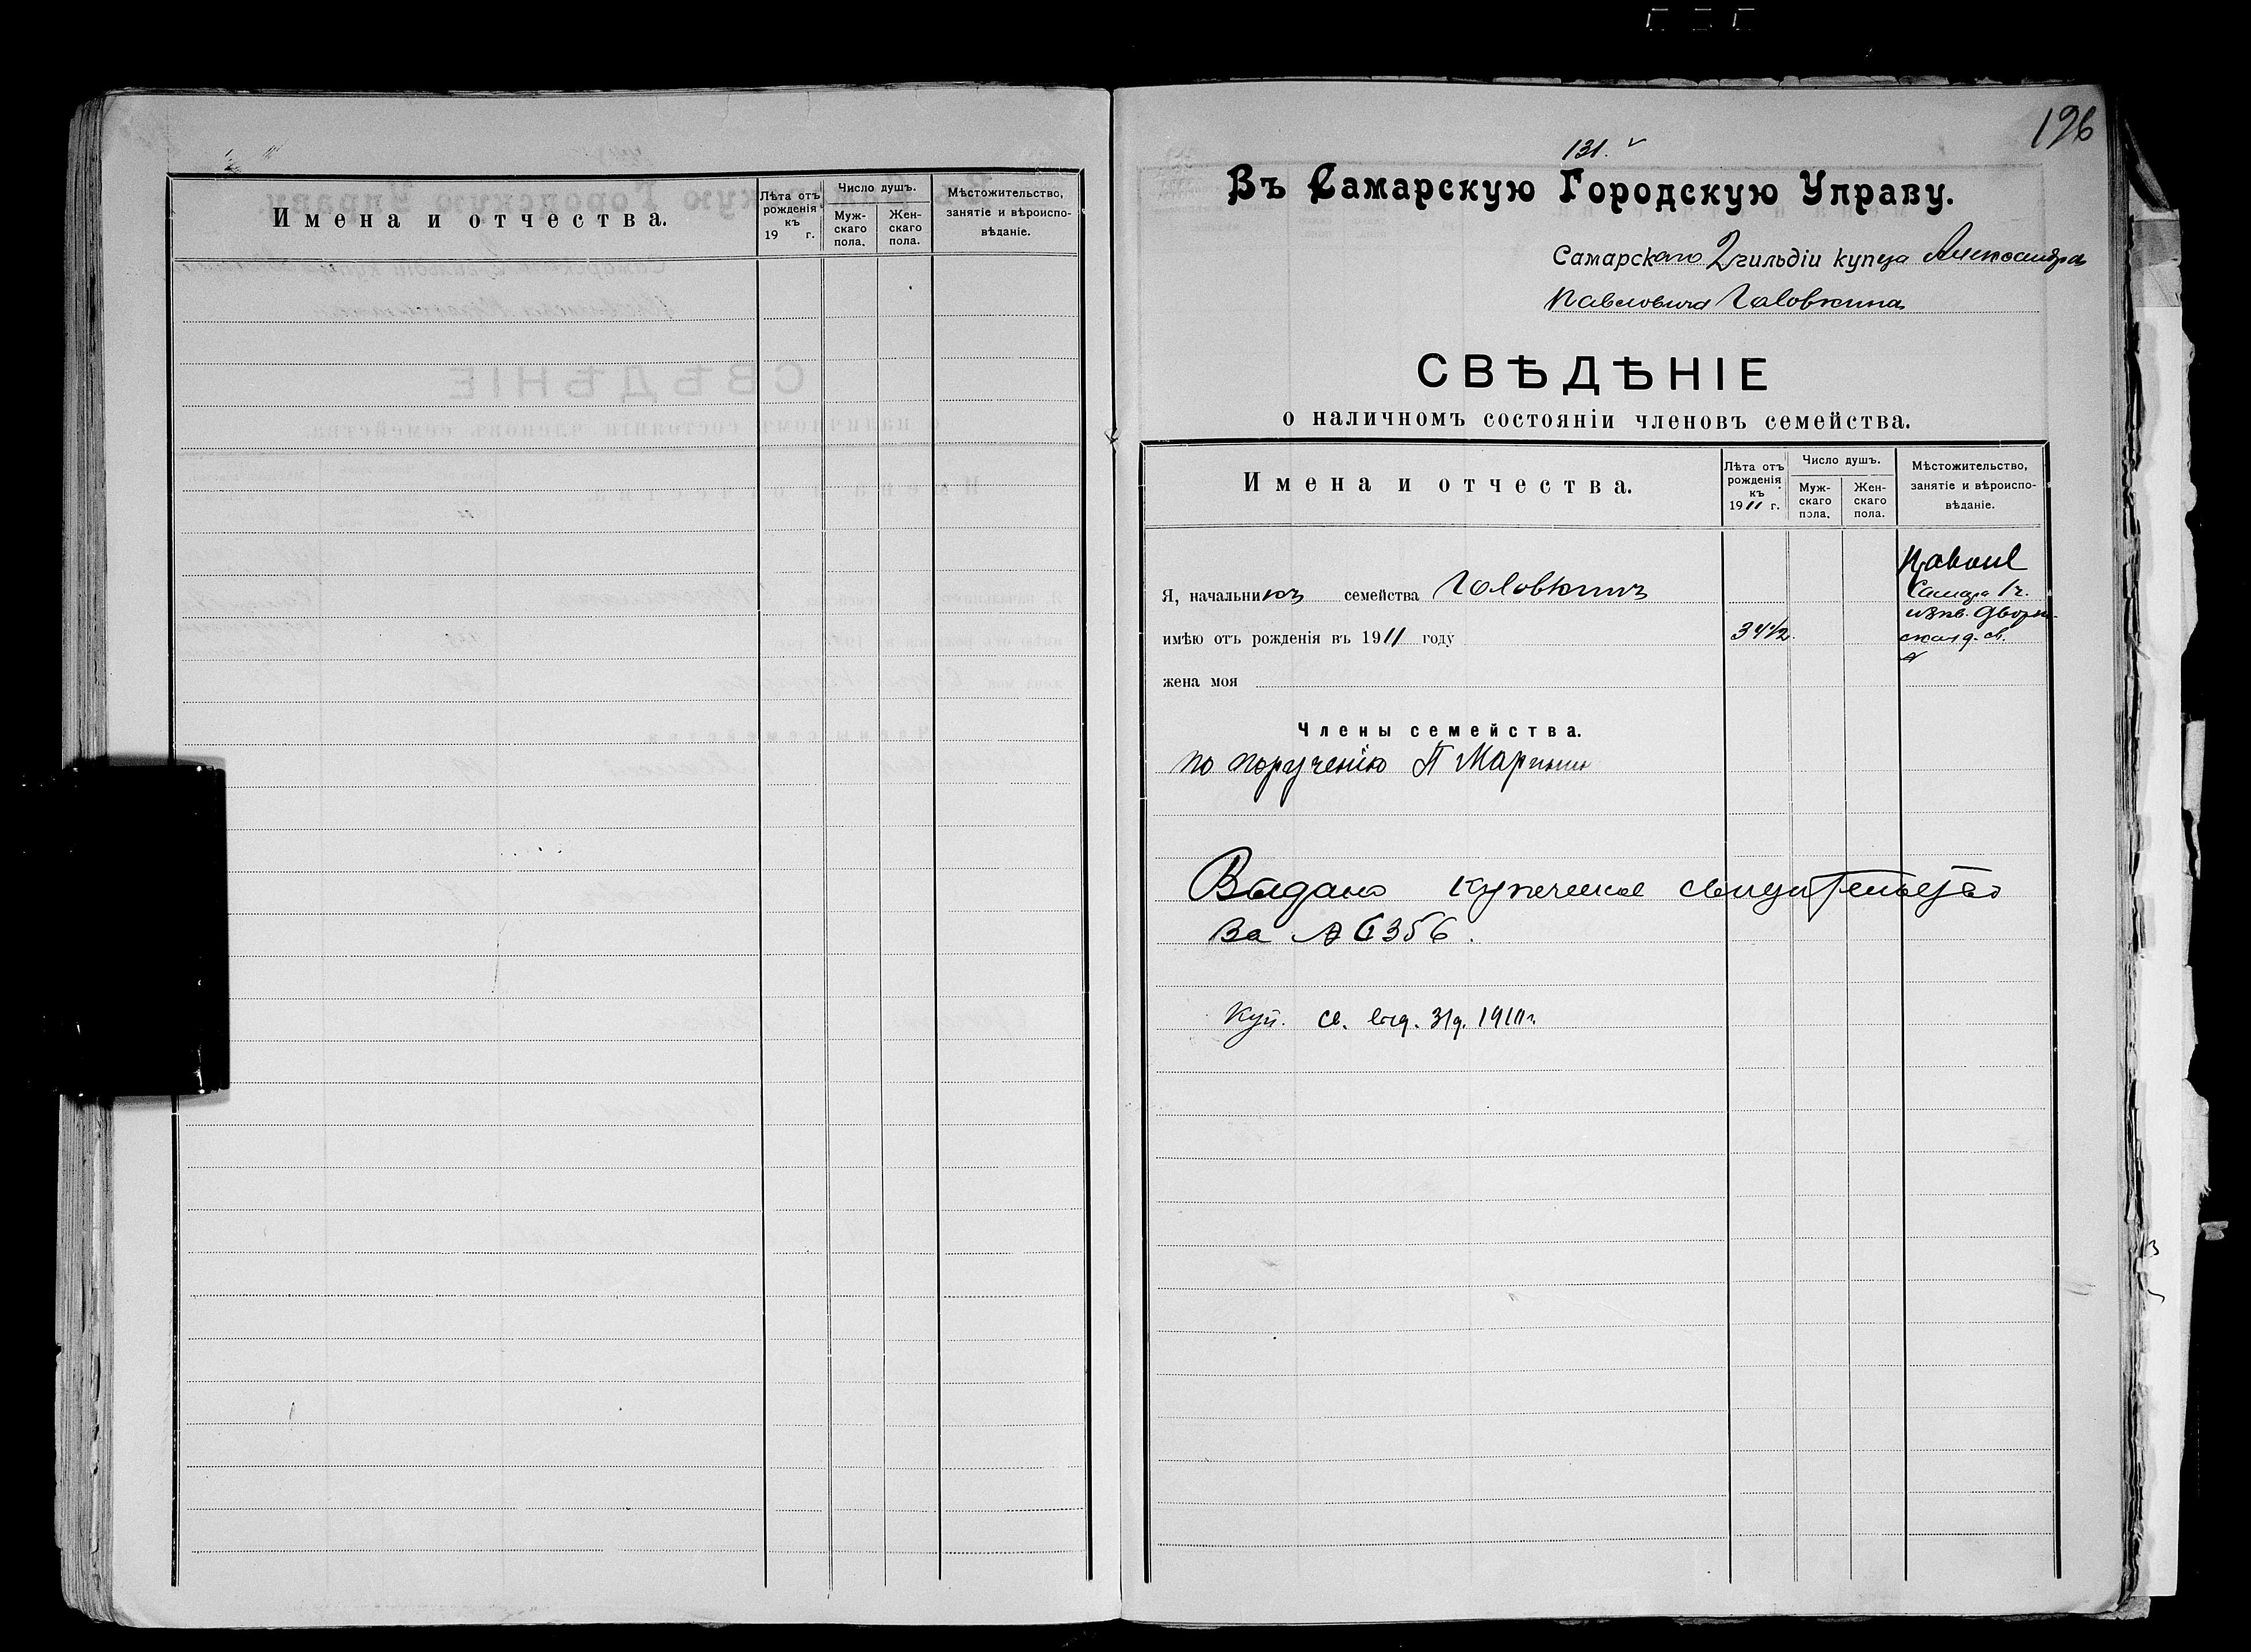 Имена и отчества.
Лѣта отъ рожденія къ 19 г.
Число душъ.
Мужскаго пола.
Женскаго пола.
Мѣстожительство, занятіе и вѣроисповѣданіе.
196
131.
Въ Самарскую Городскую Управу.
Самарскаго 2 гильдіи купца Александра
Павловича Головкина
СВѢДѢНІЕ
о наличномъ состояніи членовъ семейства.
Имена и отчества.
Лѣта отъ рожденія къ 1911 г.
Число душъ.
Мужскаго пола.
Женскаго пола.
Мѣстожительство, занятіе и вѣроисповѣданіе.
Я, начальникъ семейства Головкинъ
имѣю отъ рожденія въ 1911 году 34½
Самара 1 ч.
жена моя
Члены семейства.
по порученію П
Выдано купеческое свидетельство
За № 6356.
Куп. св. выд. 31 д. 1910 г.